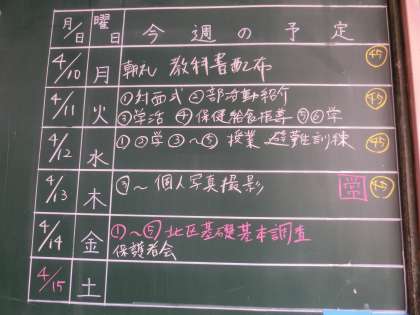 月/日 曜日 今週の予定
4/10 月 朝礼 教科書配布 45
4/11 火 ①対面式 ②部活動紹介 45
③学活 ④保健給食指導 ⑤⑥学
4/12 水 ①②学③~⑤授業 避難訓練 45
4/13 木 ③~個人写真撮影 45
4/14 金 ①~⑤北区基礎基本調査
保護者会
4/15 土